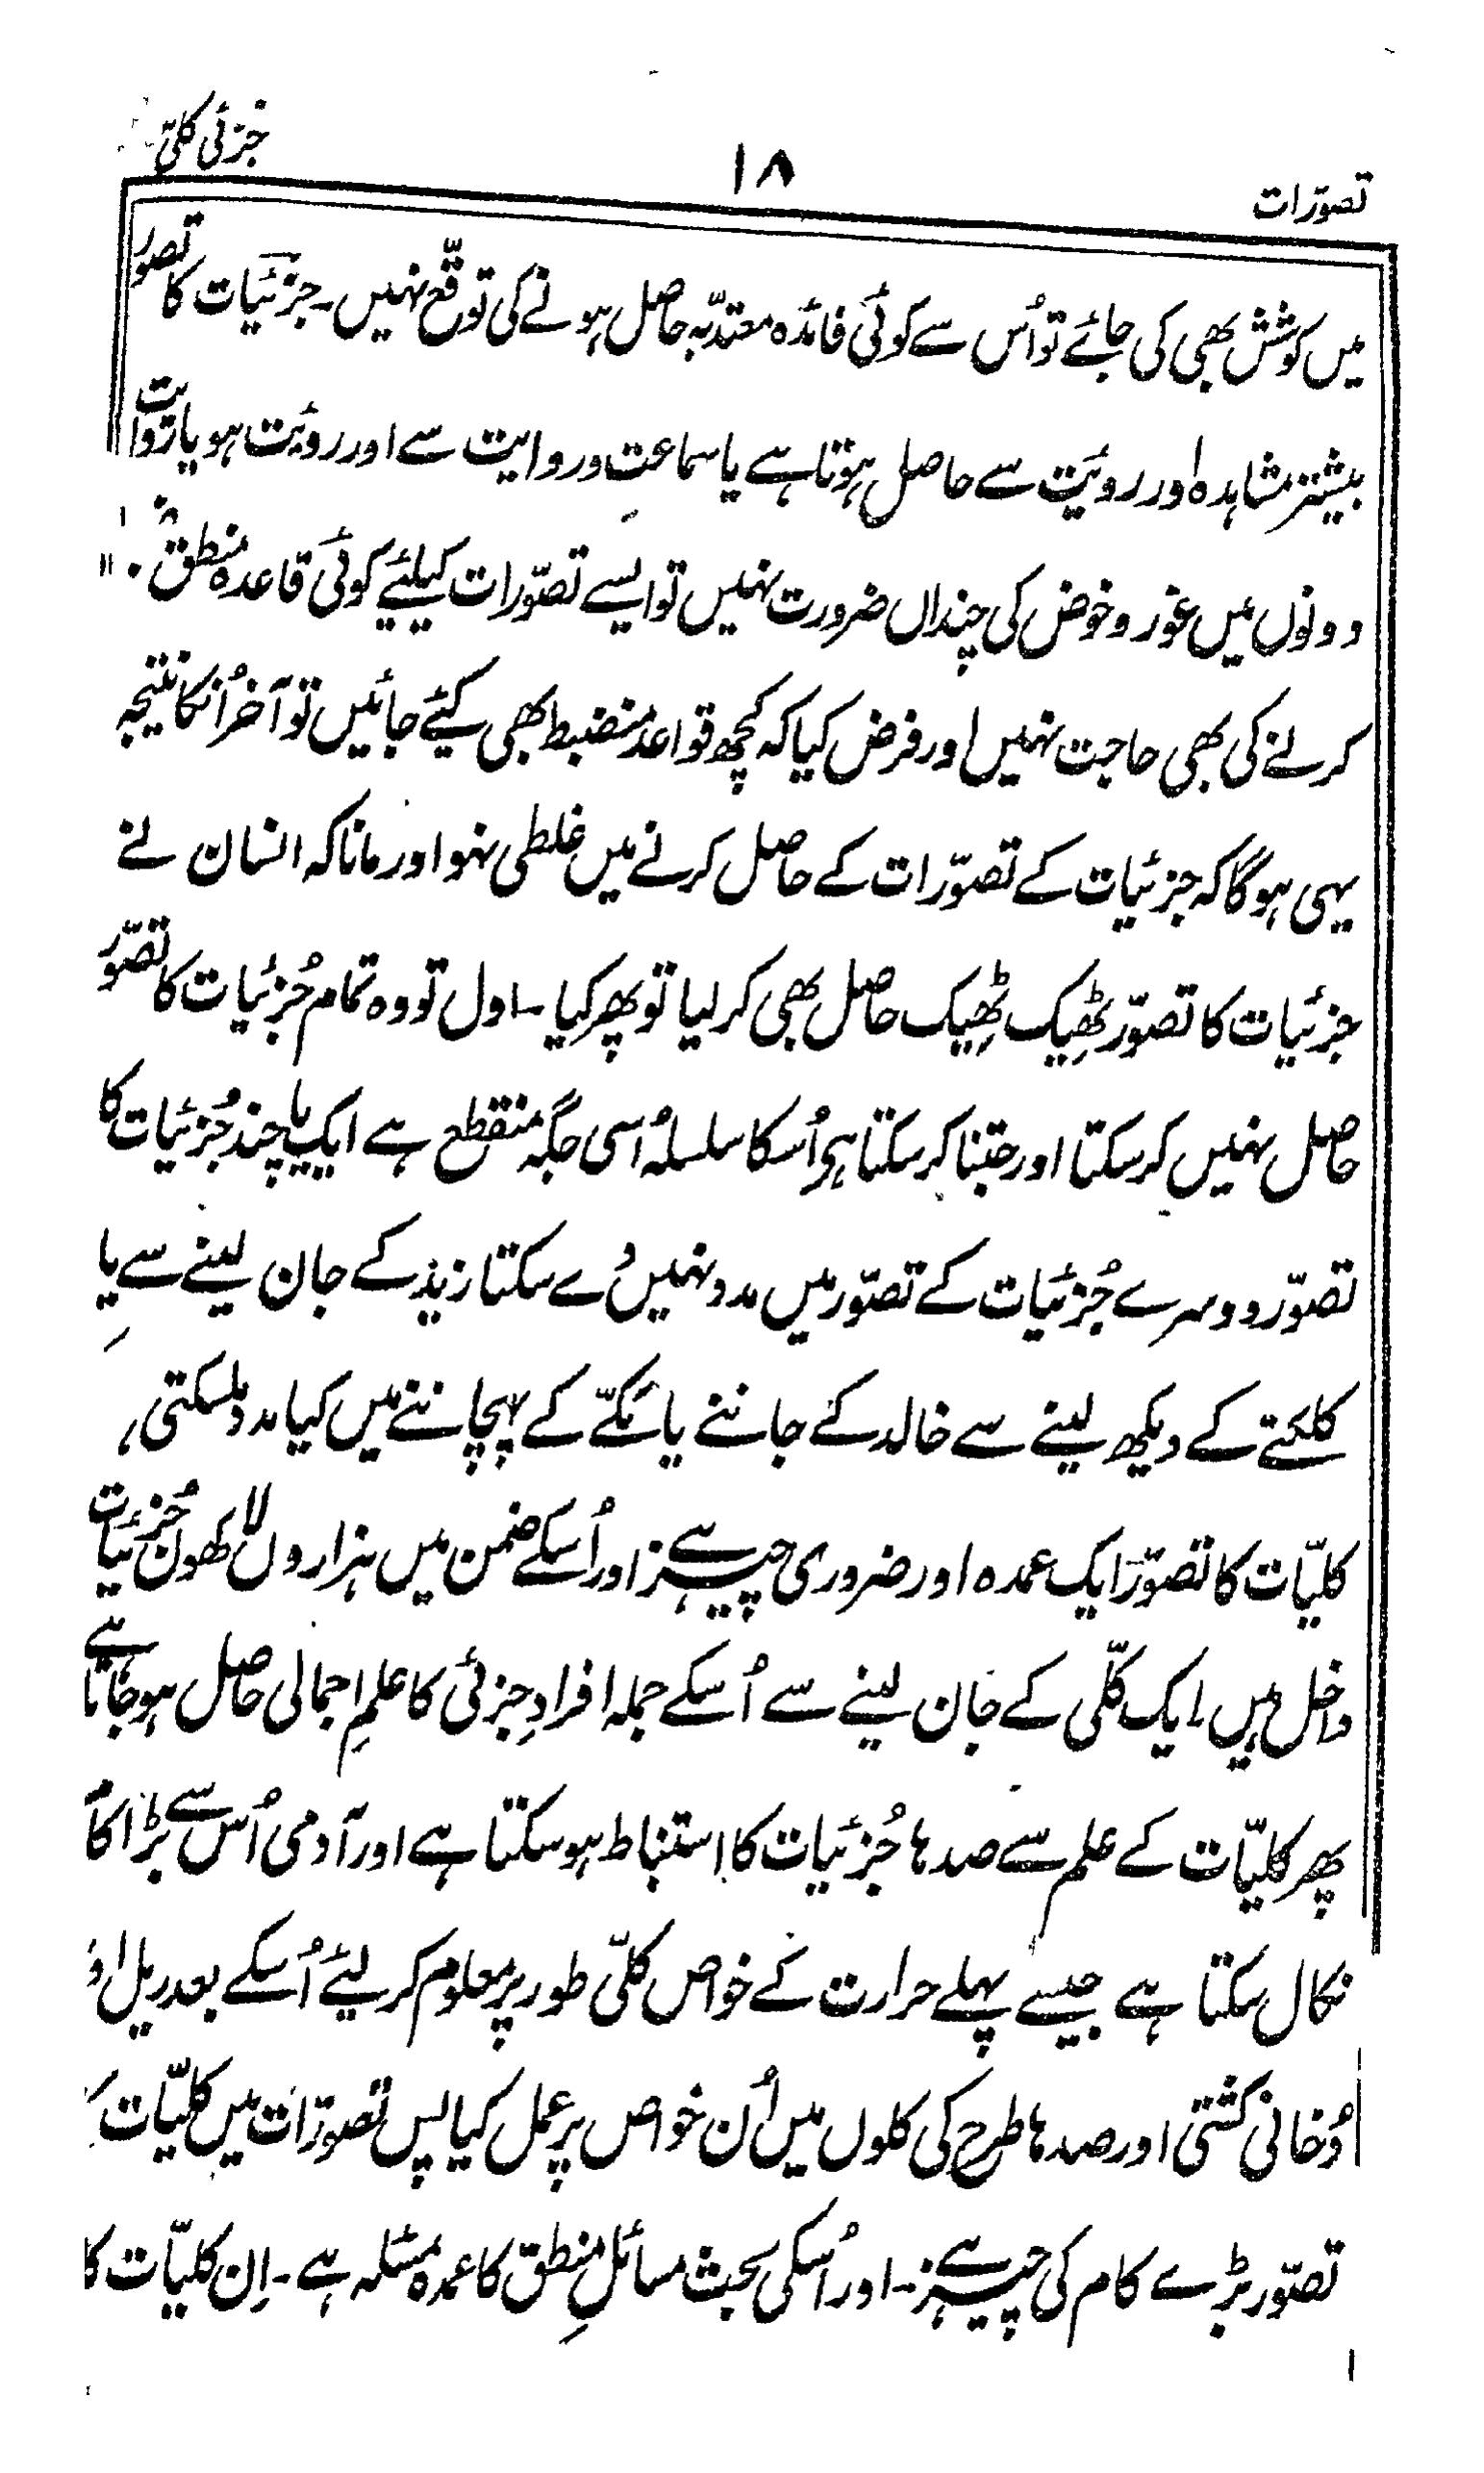 تصوّرات
۱۸
جزئی کلّی
میں کوشش بھی کی جائے تو اُس سے کوئی فائدہ معتدبہ حاصل ہونے کی توقّع نہیں۔ جزئیات کا تصور
بیشتر مشاہدہ اور رویت سے حاصل ہوتا ہے یا سماعت و روایت سے اور رویت ہو یا روایت
دونوں میں غور و خوض کی چنداں ضرورت نہیں تو ایسے تصوّرات کیلئے کوئی قاعدہ منطق
کرنے کی بھی حاجت نہیں اور فرض کیا کہ کچھ قواعد منضبط بھی کیئے جائیں تو آخر اُنکا نتیجہ
یہی ہوگا کہ جزئیات کے تصوّرات کے حاصل کرنے میں غلطی نہو اور مانا کہ انسان نے
جزئیات کا تصوّر ٹھیک ٹھیک حاصل بھی کر لیا تو پھر کیا۔ اول تو وہ تمام جُزئیات کا تصوّر
حاصل نہیں کر سکتا اور جتنا کر سکتا ہی اُسکا سلسلہ اُسی جگہ منقطع ہے ایک یا چند جُزئیات کا
تصوّر دوسرے جُزئیات کے تصوّر میں مدد نہیں دے سکتا زید کے جان لینے سے یا
کلکتے کے دیکھ لینے سے خالد کے جاننے یا مکّے کے پہچاننے میں کیا مدد ملسکتی
کلیّات کا تصوّر ایک عمدہ اور ضروری چیز ہے اور اُسکے ضمن میں ہزاروں لاکھوں جُزئیات
داخل ہیں ایک کلّی کے جان لینے سے اُسکے جملہ افرادِ جزئی کا علمِ اجمالی حاصل ہو جاتا ہے
پھر کلیّات کے علم سے صدہا جُزئیات کا استنباط ہو سکتا ہے اور آدمی اُس سے بڑا کام
نکال سکتا ہے جیسے پہلے حرارت کے خواص کلّی طور پر معلوم کر لیئے اُسکے بعد ریل او
دُخانی کشتی اور صدہا طرح کی کلوں میں اُن خواص پر عمل کیا پس تصوّرات میں کلیّات
تصوّر بڑے کام کی چیز ہے۔ اور اُسکی بحث مسائلِ منطق کا عمدہ مسئلہ ہے۔ اِن کلیّات کا